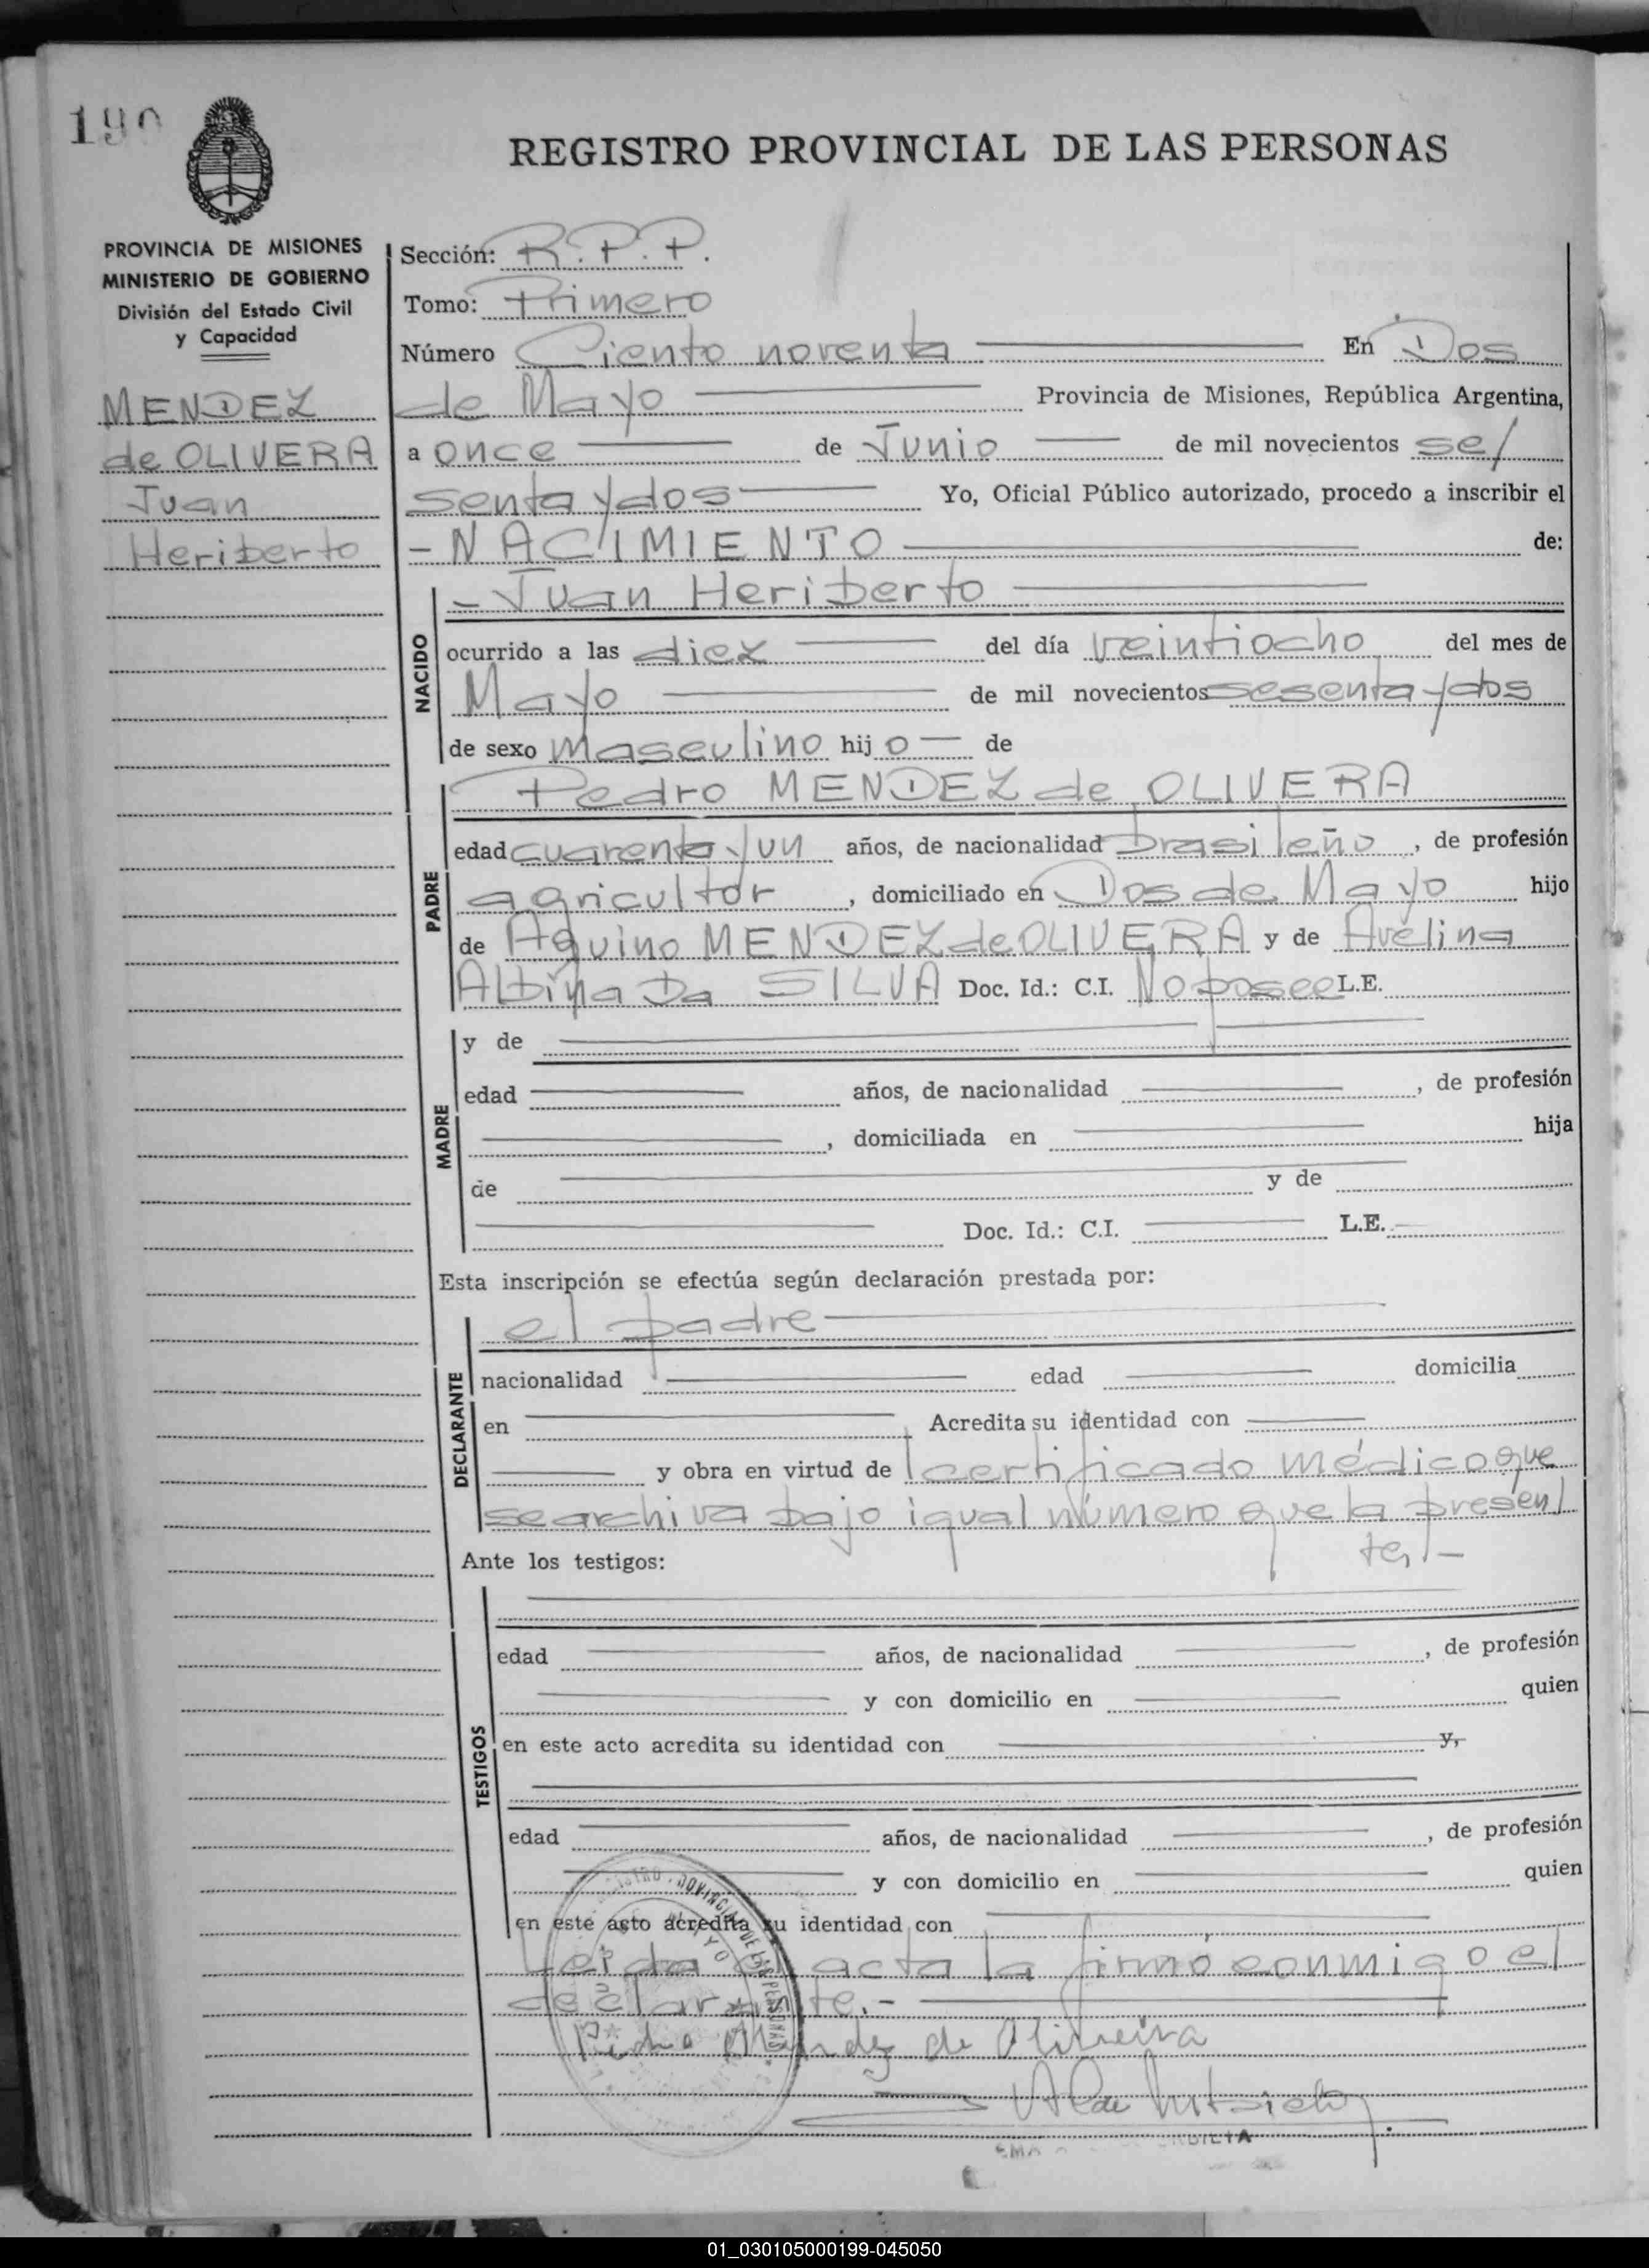 190
REGISTRO PROVINCIAL DE LAS PERSONAS
PROVINCIA DE MISIONES
MINISTERIO DE GOBIERNO
División del Estado Civil
y Capacidad
MENDEZ
de OLIVERA
Juan
Heriberto
Sección: R.P.P.
Tomo: Primero
Número Ciento noventa En Dos
de Mayo Provincia de Misiones, República Argentina,
a once de Junio de mil novecientos se/
senta y dos Yo, Oficial Público autorizado, procedo a inscribir el
- NACIMIENTO de:
NACIDO
- Juan Heriberto
ocurrido a las diez del día veintiocho del mes de
Mayo de mil novecientos sesenta y dos
de sexo masculino hijo de
PADRE
Pedro MENDEZ de OLIVERA
edad cuarenta y un años, de nacionalidad brasileño, de profesión
agricultor, domiciliado en Dos de Mayo hijo
de Aquino MENDEZ de OLIVERA y de Avelina
Albina Da SILVA Doc. Id.: C.I. No posee L.E.
MADRE
y de
edad años, de nacionalidad , de profesión
, domiciliada en hija
de y de
Doc. Id.: C.I. L.E.
Esta inscripción se efectúa según declaración prestada por:
DECLARANTE
el padre
nacionalidad edad domicilia
en Acredita su identidad con
y obra en virtud de certificado médico que
se archiva bajo igual número que la presen/
te,-
Ante los testigos:
TESTIGOS
edad años, de nacionalidad , de profesión
y con domicilio en quien
en este acto acredita su identidad con y,
edad años, de nacionalidad , de profesión
y con domicilio en quien
en este acto acredita su identidad con
Leida el acta la firmó conmigo el
declarante.-
Pedro Mendez de Oliveira
01_030105000199-045050